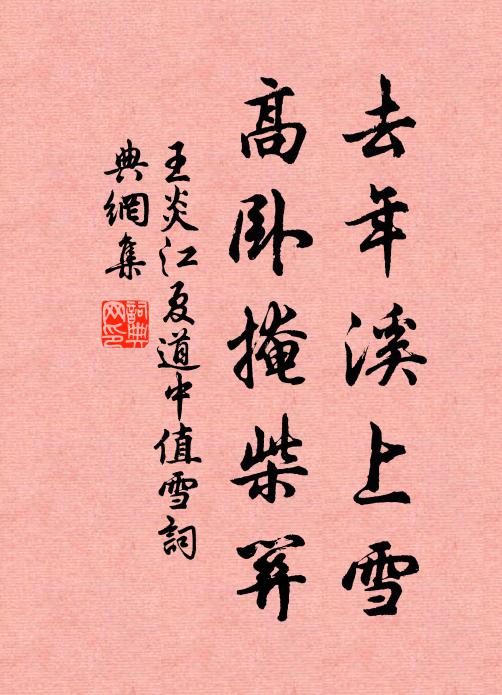 去年溪上雪
高臥掩柴筓
王炎江夏道中值雪詞
典網集
詞典
网印